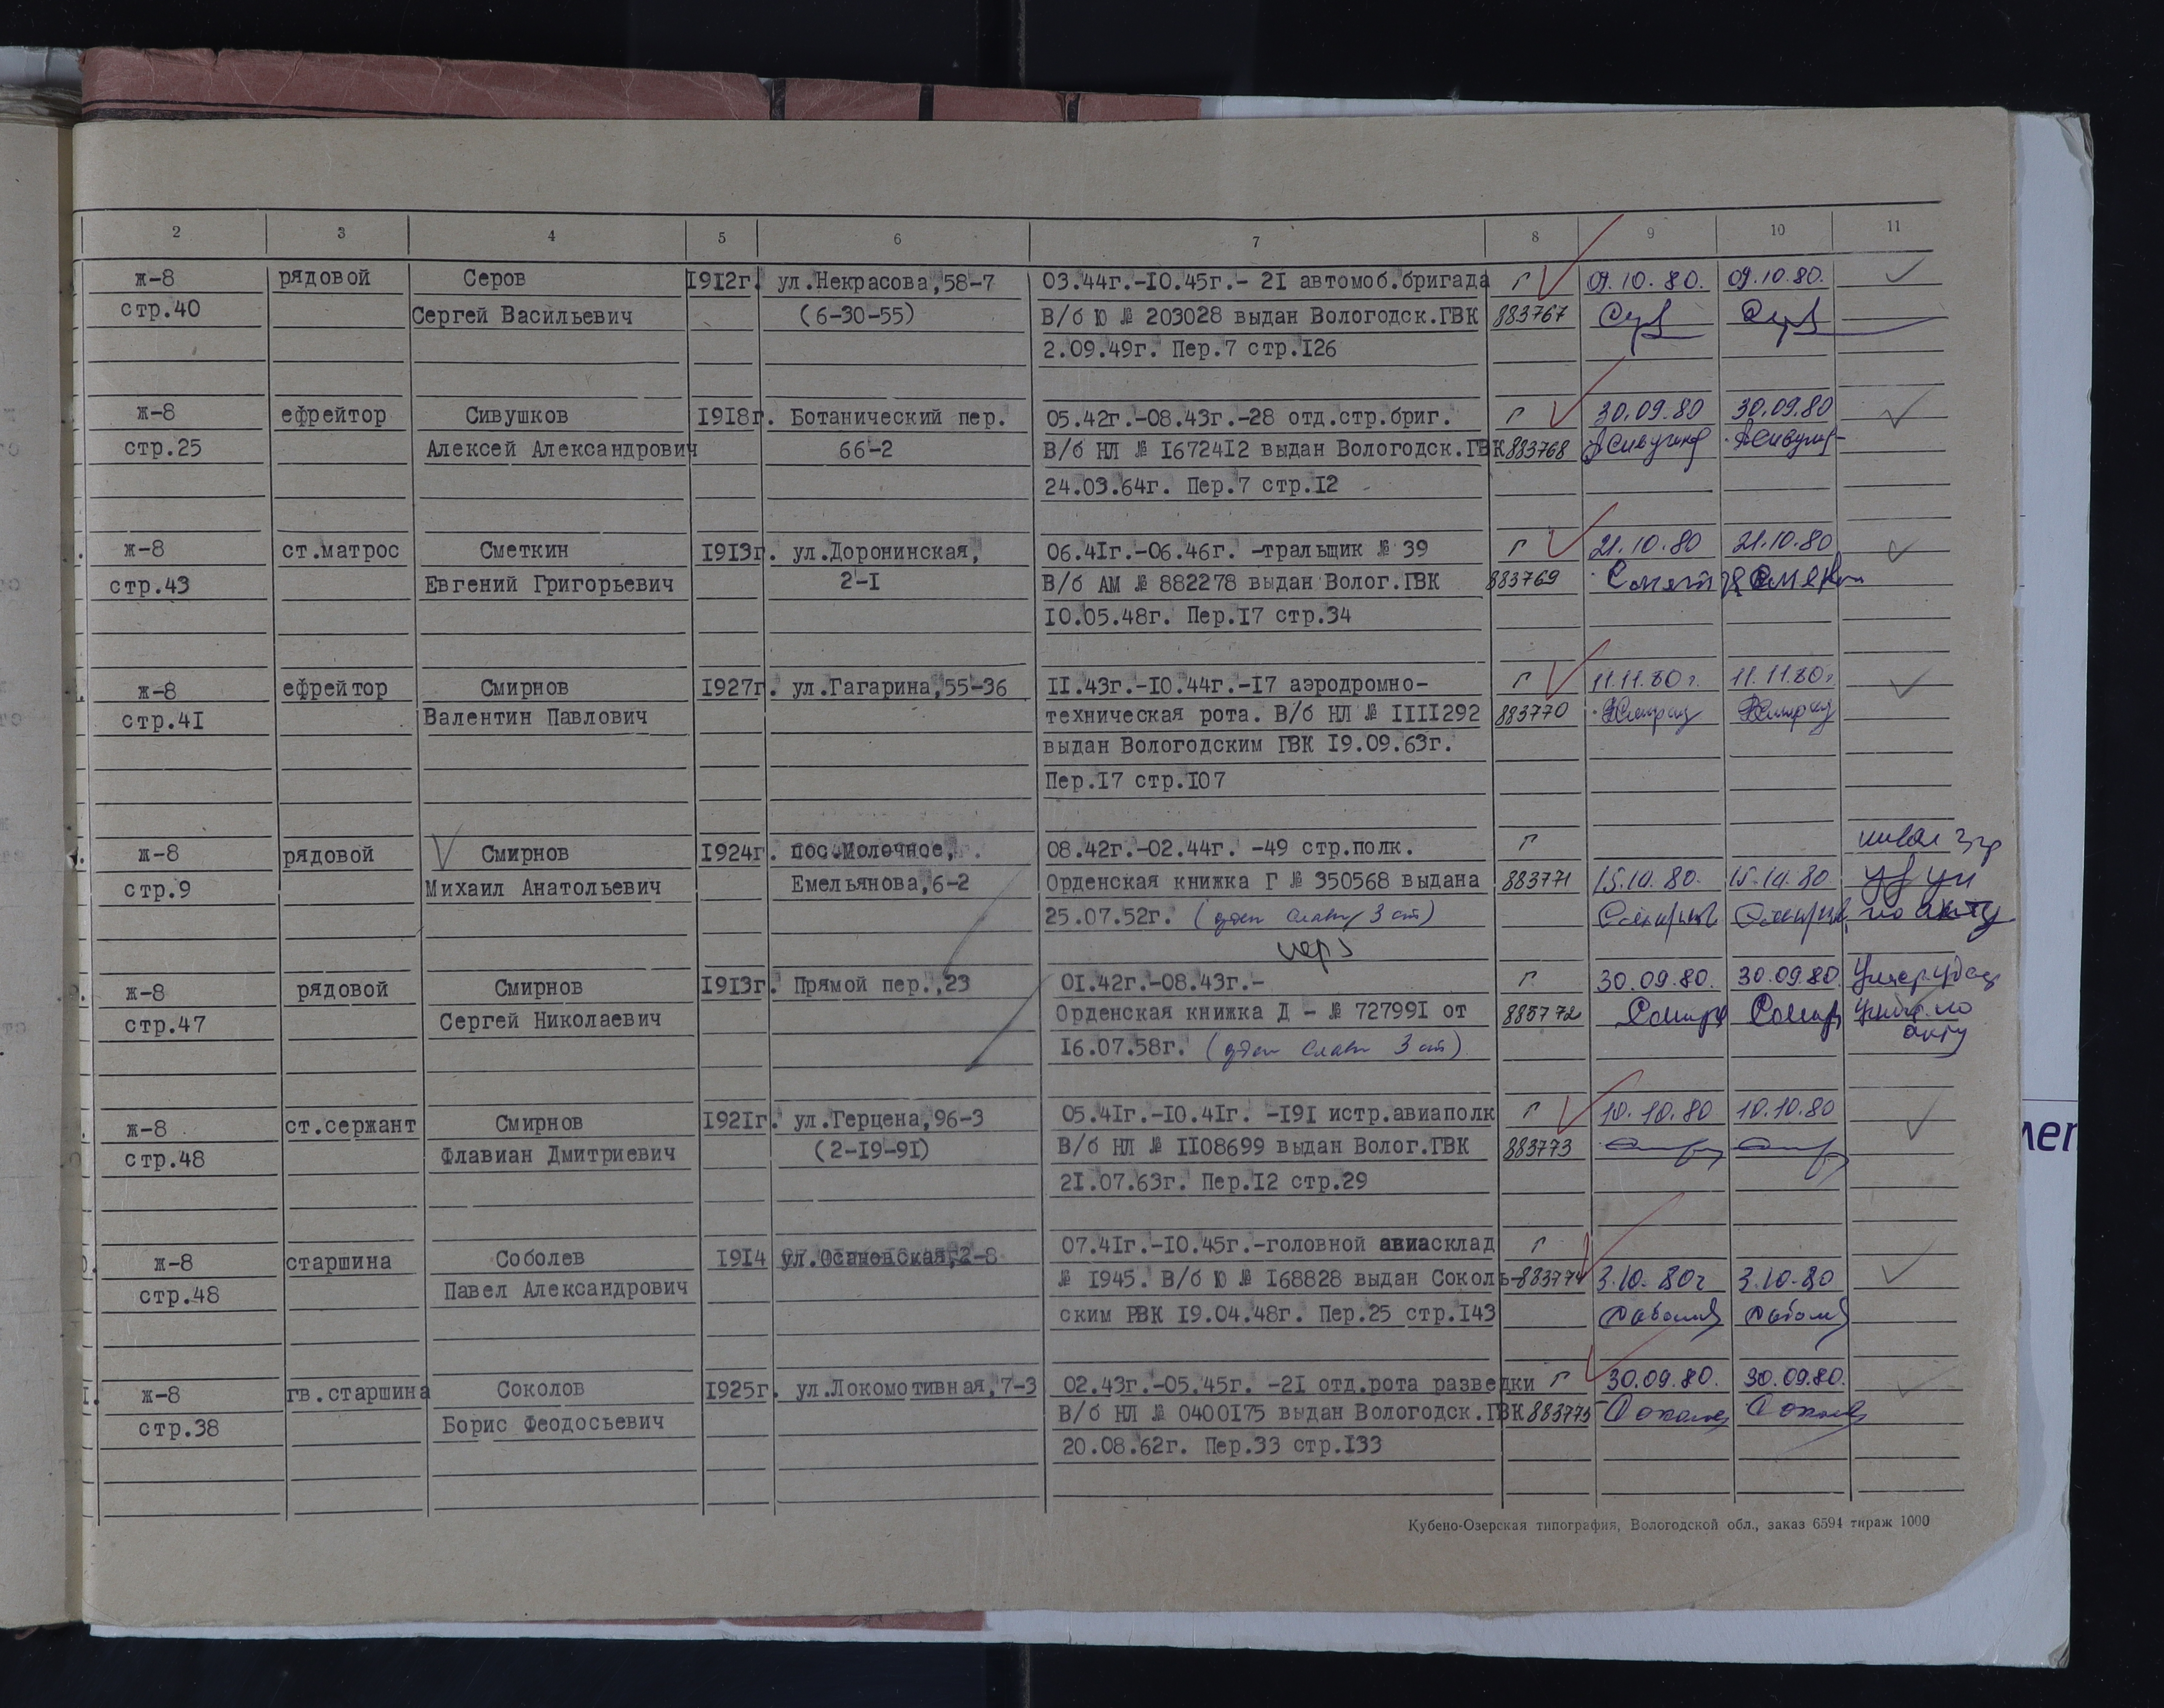 2 3 4 5 6 7 8 9 10 11
ж-8 рядовой Серов 1912г. ул.Некрасова,58-7 03.44г.-10.45г.- 21 автомоб.бригада г 09.10.80. 09.10.80.
стр.40 Сергей Васильевич (6-30-55) В/б Ю № 203028 выдан Вологодск.ГВК 883767
2.09.49г. Пер.7 стр.126
ж-8 ефрейтор Сивушков 1918г. Ботанический пер. 05.42г.-08.43г.-28 отд.стр.бриг. г 30.09.80 30.09.80
стр.25 Алексей Александрович 66-2 В/б НЛ № 1672412 выдан Вологодск.ГВК 883768
24.03.64г. Пер.7 стр.12
ж-8 ст.матрос Сметкин 1913г. ул.Доронинская, 06.41г.-06.46г. -тральщик № 39 г 21.10.80 21.10.80
стр.43 Евгений Григорьевич 2-1 В/б АМ № 882278 выдан Волог.ГВК 883769
10.05.48г. Пер.17 стр.34
ж-8 ефрейтор Смирнов 1927г. ул.Гагарина,55-36 11.43г.-10.44г.-17 аэродромно- г 11.11.80г. 11.11.80г.
стр.41 Валентин Павлович техническая рота. В/б НЛ № 1111292 883770
выдан Вологодским ГВК 19.09.63г.
Пер.17 стр.107
ж-8 рядовой Смирнов 1924г. пос.Молочное, 08.42г.-02.44г. -49 стр.полк. г
стр.9 Михаил Анатольевич Емельянова,6-2 Орденская книжка Г № 350568 выдана 883771 15.10.80. 15.10.80.
25.07.52г. (орден Славы 3 ст) Смирнов по акту
ж-8 рядовой Смирнов 1913г. Прямой пер.,23 01.42г.-08.43г.- г 30.09.80. 30.09.80.
стр.47 Сергей Николаевич Орденская книжка Д - № 727991 от 883772 по
16.07.58г. (орден Славы 3 ст) акту
ж-8 ст.сержант Смирнов 1921г. ул.Герцена,96-3 05.41г.-10.41г. -191 истр.авиаполк г 10.10.80 10.10.80
стр.48 Флавиан Дмитриевич (2-19-91) В/б НЛ № 1108699 выдан Волог.ГВК 883773
21.07.63г. Пер.12 стр.29
ж-8 старшина Соболев 1914 ул.Осановская,2-8 07.41г.-10.45г.-головной авиасклад г
стр.48 Павел Александрович № 1945. В/б Ю № 168828 выдан Соколь- 883774 3.10.80г 3.10.80
ским РВК 19.04.48г. Пер.25 стр.143
ж-8 гв.старшина Соколов 1925г. ул.Локомотивная,7-3 02.43г.-05.45г. -21 отд.рота разведки г 30.09.80. 30.09.80.
стр.38 Борис Феодосьевич В/б НЛ № 0400175 выдан Вологодск.ГВК 883775
20.08.62г. Пер.33 стр.133
Кубено-Озерская типография, Вологодской обл., заказ 6594 тираж 1000